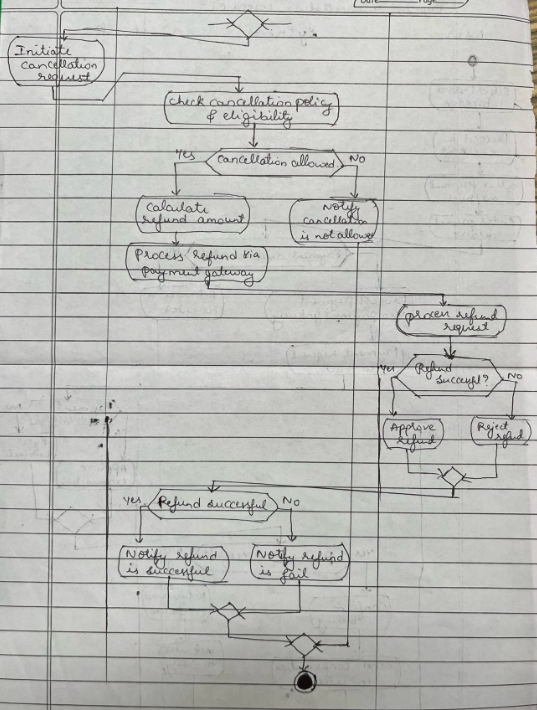 Date Page
Initiate
cancellation
request
check cancellation policy
& eligibility
Yes
cancellation allowed
No
Calculate
refund amount
Notify
cancellation
is not allowed
Process refund via
payment gateway
process refund
request
Yes
Refund
successful?
No
Approve
refund
Reject
refund
Yes
Refund successful
No
Notify refund
is successful
Notify refund
is fail